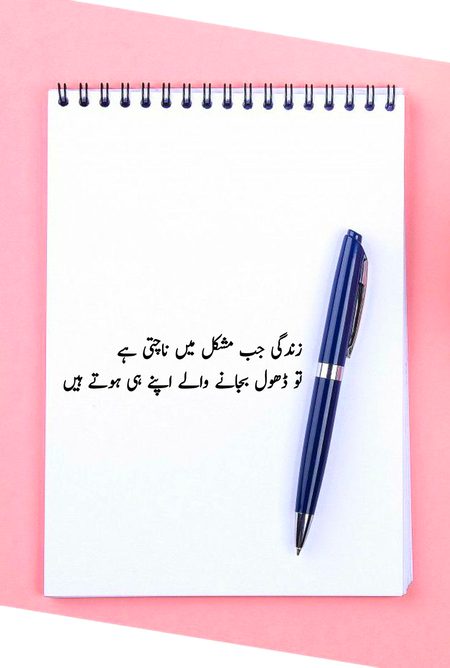 زندگی جب مشکل میں ناچتی ہے
تو ڈھول بجانے والے اپنے ہی ہوتے ہیں